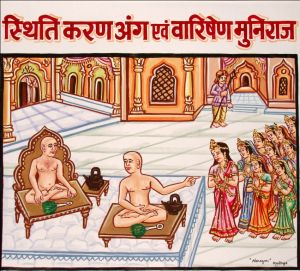 स्थिति करण अंग एवं वारिषेण मुनिराज